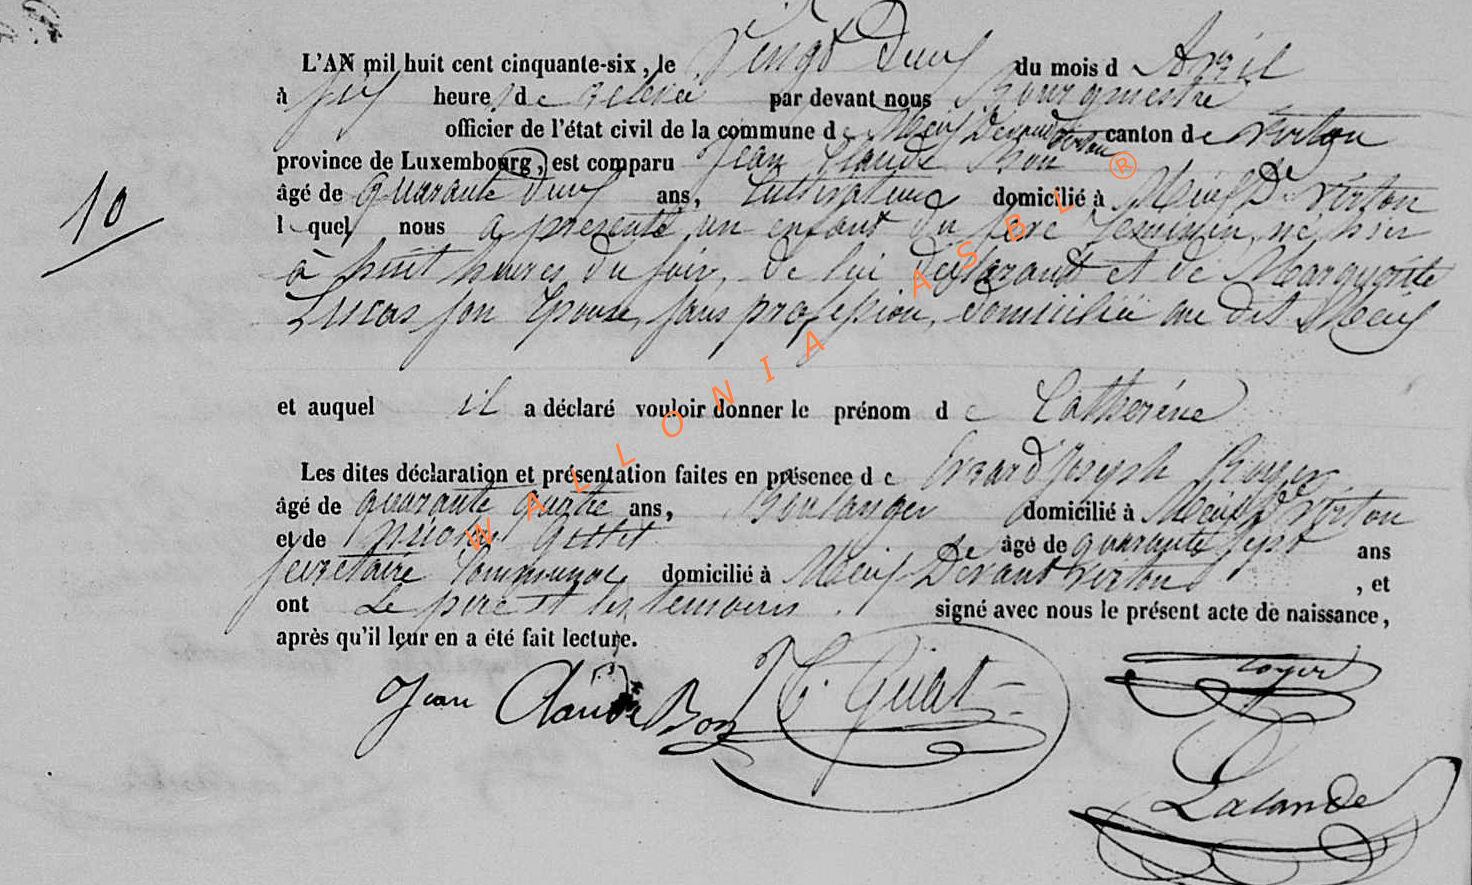 L'AN mil huit cent cinquante-six, le Vingt Deux du mois d Avril
à six heures de relevée par devant nous Bourgmestre
officier de l'état civil de la commune de Meix Devant Virton canton de Virton
province de Luxembourg, est comparu Jean Claude Bon
âgé de quarante Deux ans, Cultivateur domicilié à Meix De Virton
10
lequel nous a présenté un enfant du sexe féminin, né hier
à huit heures du soir, de lui déclarant et de Marguerite
Lucas son Epouse, sans profession, domiciliée au dit Meix
et auquel il a déclaré vouloir donner le prénom de Catherine
Les dites déclaration et présentation faites en présence de Erard Joseph
âgé de quarante quatre ans, Boulanger domicilié à Meix De Virton
et de âgé de quarante sept ans
secrétaire Communal domicilié à Meix Devant Virton, et
ont Le père et les témoins signé avec nous le présent acte de naissance,
après qu'il leur en a été fait lecture.
Jean Claude Bon
Lalande
WALLONIA ASBL ®